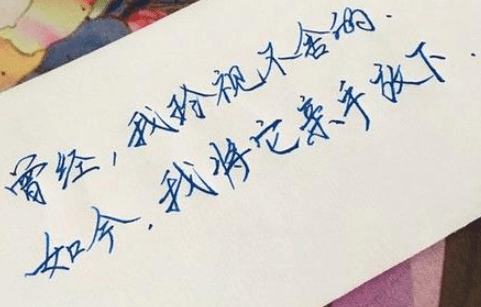 曾经，我珍视不舍的.
如今.我将它亲手放下.